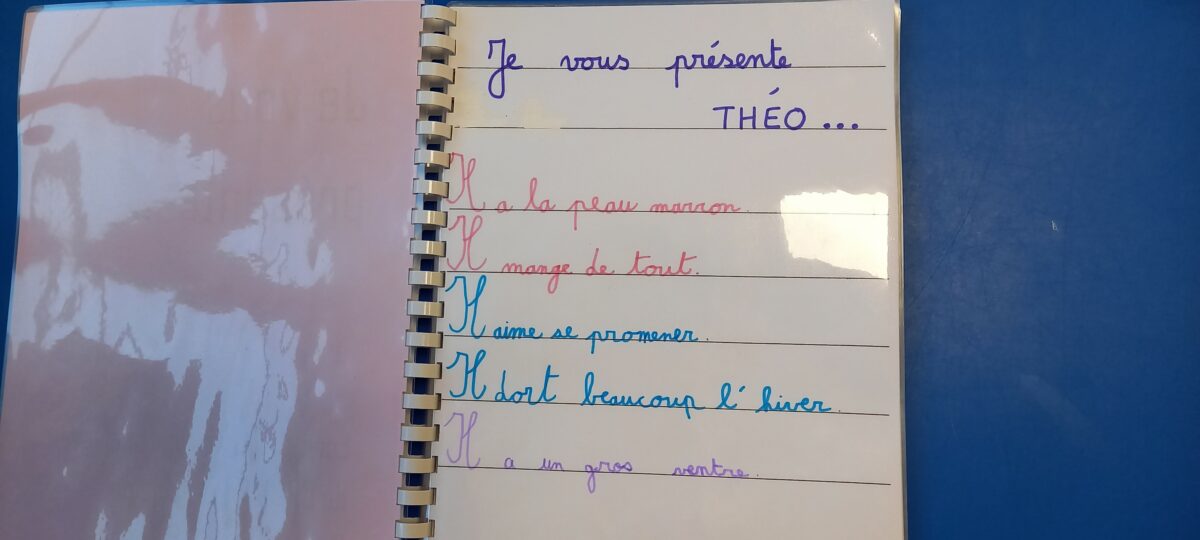 Je vous présente
THÉO ...
Il a la peau marron.
Il mange de tout.
Il aime se promener.
Il dort beaucoup l'hiver.
Il a un gros ventre.